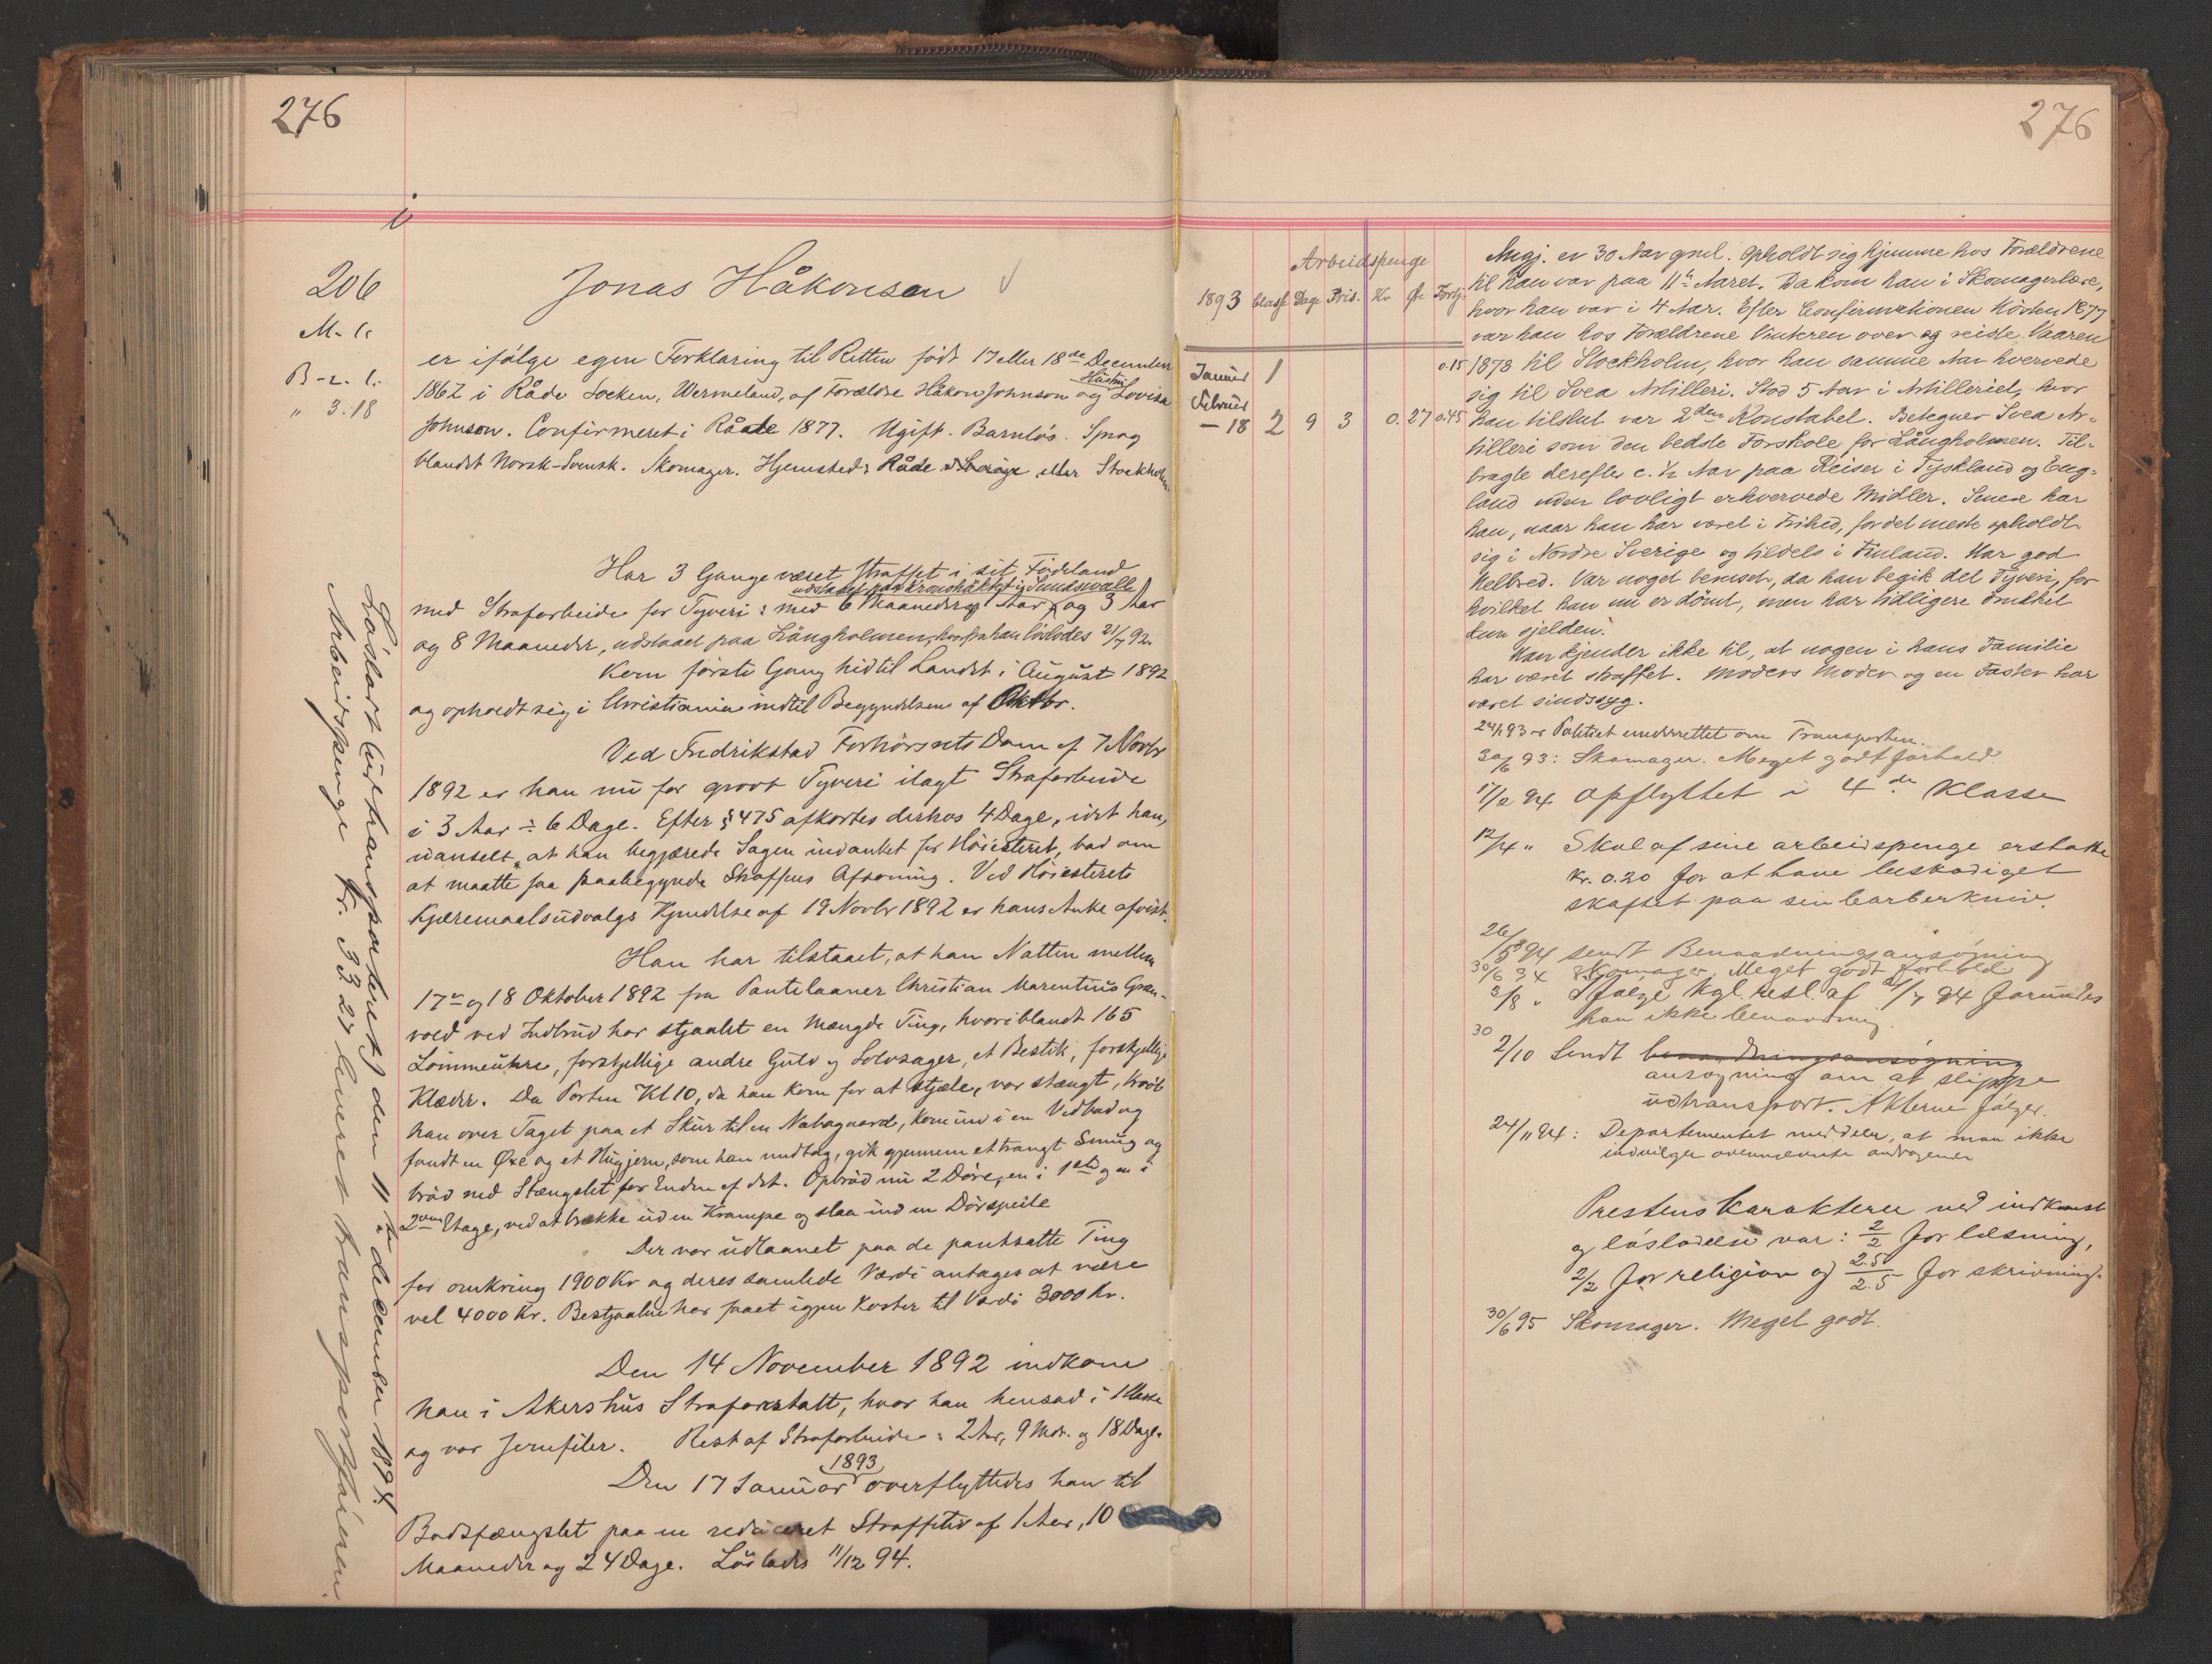 276
i
206
M. 1.
B-2. 1.
" 3.18
Jonas Håkonsen
er ifølge egen Forklaring til Retten født 17 eller 18de December
1862 i Råde Socken, Wermeland, af Forældre Håkon Johnson og Hustru Lovisa
Johnson. Confirmeret i Råde 1877. Ugift. Barnløs. Sprog
blandet Norsk-Svensk. Skomager. Hjemsted: Råde i Sverige eller Stockholm
Har 3 Gange været straffet i sit Fødeland
udstaaet paa Kronohäktet i Sundsvall
med Strafarbeide for Tyveri: med 6 Maaneder, 1 Aar og 3 Aar
og 8 Maaneder, udstaaet paa Långholmen, hvorfra han løslodes 21/7 92.
Kom første Gang hidtil Landet i August 1892
og opholdt sig i Christiania indtil Begyndelsen af Oktbr.
Ved Fredrikstad Forhørsrets Dom af 7 Novbr
1892 er han nu for grovt Tyveri ilagt Strafarbeide
i 3 Aar ÷ 6 Dage. Efter § 475 afkortes derhos 4 Dage, idet han,
uanseet at han begjærede Sagen indanket for Høiesteret, bad om
at maatte faa paabegynde Straffens Afsoning. Ved Høiesterets
Kjæremaalsudvalgs Kjendelse af 19 Novbr 1892 er hans Anke afvist.
Han har tilstaaet, at han Natten mellem
17de og 18 Oktober 1892 fra Pantelaaner Christian Marentius Græn-
vold ved Indbrud har stjaalet en Mængde Ting, hvoriblandt 165
Lommeuhre, forskjellige andre Guld og Sølvsager, et Bestik, forskjellige
Klæder. Da Porten Kl 10, da han kom for at stjæle, var stængt, krøb
han over Taget paa et Skur til en Nabogaard, kom ind i en Vedbod og
fandt en Øxe og et Hugjern, som han medtog, gik gjennem et trangt Smug og
brød ned Stængslet for Enden af det. Opbrød nu 2 Døre, en i 1ste og en i
2den Etage, ved at brække ud en Krampe og slaa ind en Dørspeile
Der var udlaanet paa de pantsatte Ting
for omkring 1900 Kr og deres samlede Værdi antages at være
vel 4000 Kr. Bestjaalne har faaet igjen Koster til Værdi 3000 Kr.
Den 14 November 1892 indkom
han i Akershus Strafanstalt, hvor han hensad i 1 Klasse
og var Jernfiler. Rest af Strafarbeide: 2 Aar, 9 Mdr. og 18 Dage.
Den 17 Januar 1893 overflyttedes han til
Bodsfængslet paa en reduceret Straffetid af 1 Aar, 10
Maaneder og 24 Dage. Løslades 11/12 94.
Løsladt (udtransporteret) den 11te december 1894.
Arbeidspenge Kr. 33.27 leveret transportføreren.
276
Arbeidspenge
1893 Classe Dage Fris. Kr Øre Fortj.
Januar 1 0.15
Februar
— 18 2 9 3 0.27 0.45
Angj. er 30 Aar gml. Opholdt sig hjemme hos Forældrene
til han var paa 11te Aaret. Da kom han i Skomagerlære,
hvor han var i 4 Aar. Efter Confirmationen Høsten 1877
var han hos Forældrene Vinteren over og reiste Vaaren
1878 til Stockholm, hvor han samme Aar hvervede
sig til Svea Artilleri. Stod 5 Aar i Artilleriet, hvor
han tilslut var 2den Konstabel. Betegner Svea Ar-
tilleri som den bedste Forskole for Långholmen. Til-
bragte derefter c. 1/2 Aar paa Reiser i Tyskland og Eng-
land uden lovligt erhvervede Midler. Senere har
han, naar han har været i Frihed, for det meste opholdt
sig i Nordre Sverige og tildels i Finland. Har god
Helbred. Var noget beruset, da han begik det Tyveri, for
hvilket han nu er dømt, men har tidligere drukket
kun sjelden.
Han kjender ikke til, at nogen i hans Familie
har været straffet. Moders Moder og en Faster har
været sindssyg.
24/1 93 Politiet underrettet om Transporten.
30/6 93: Skomager. Meget godt forhold.
17/2 94 opflyttet i 4de Klasse
12/4 " Skal af sine arbeidspenge erstatte
Kr. 0.20 for at have beskadiget
skaftet paa sin barberkniv.
26/5 94 sendt Benaadningsansøgning
30/6 94 Skomager. Meget godt forhold
3/8 " Ifølge kgl. resl. af 21/7 94 forundes
han ikke benaadning.
30
2/10 Sendt benaadningsansøgning
ansøgning om at slippe
udtransport. Akterne følger.
24/11 94: Departementet meddeler, at man ikke
indvilger ovennævnte andragende
Prestens Karakterer ved indkomst
og løsladelse var: 2/2 for læsning,
2/2 for religion og 2.50/2.5 for skrivning.
30/6 95 Skomager. Meget godt.